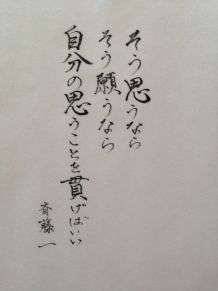 そう思うなら
そう願うなら
自分の思うことを貫げばいい
斉藤一